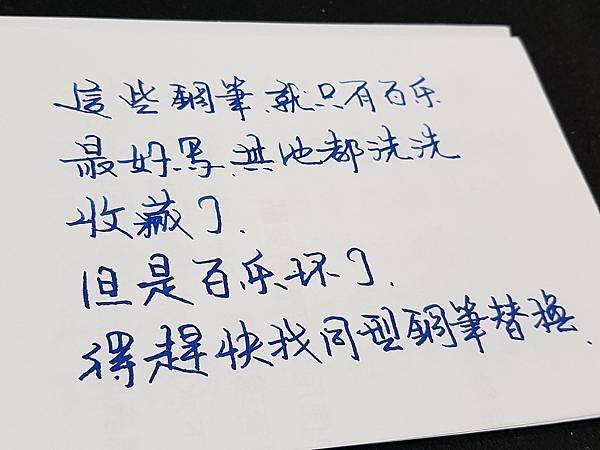 這些鋼筆就只有百乐
最好写,其他都洗洗
收藏了.
但是百乐环了.
得趕快找同型鋼筆替換.